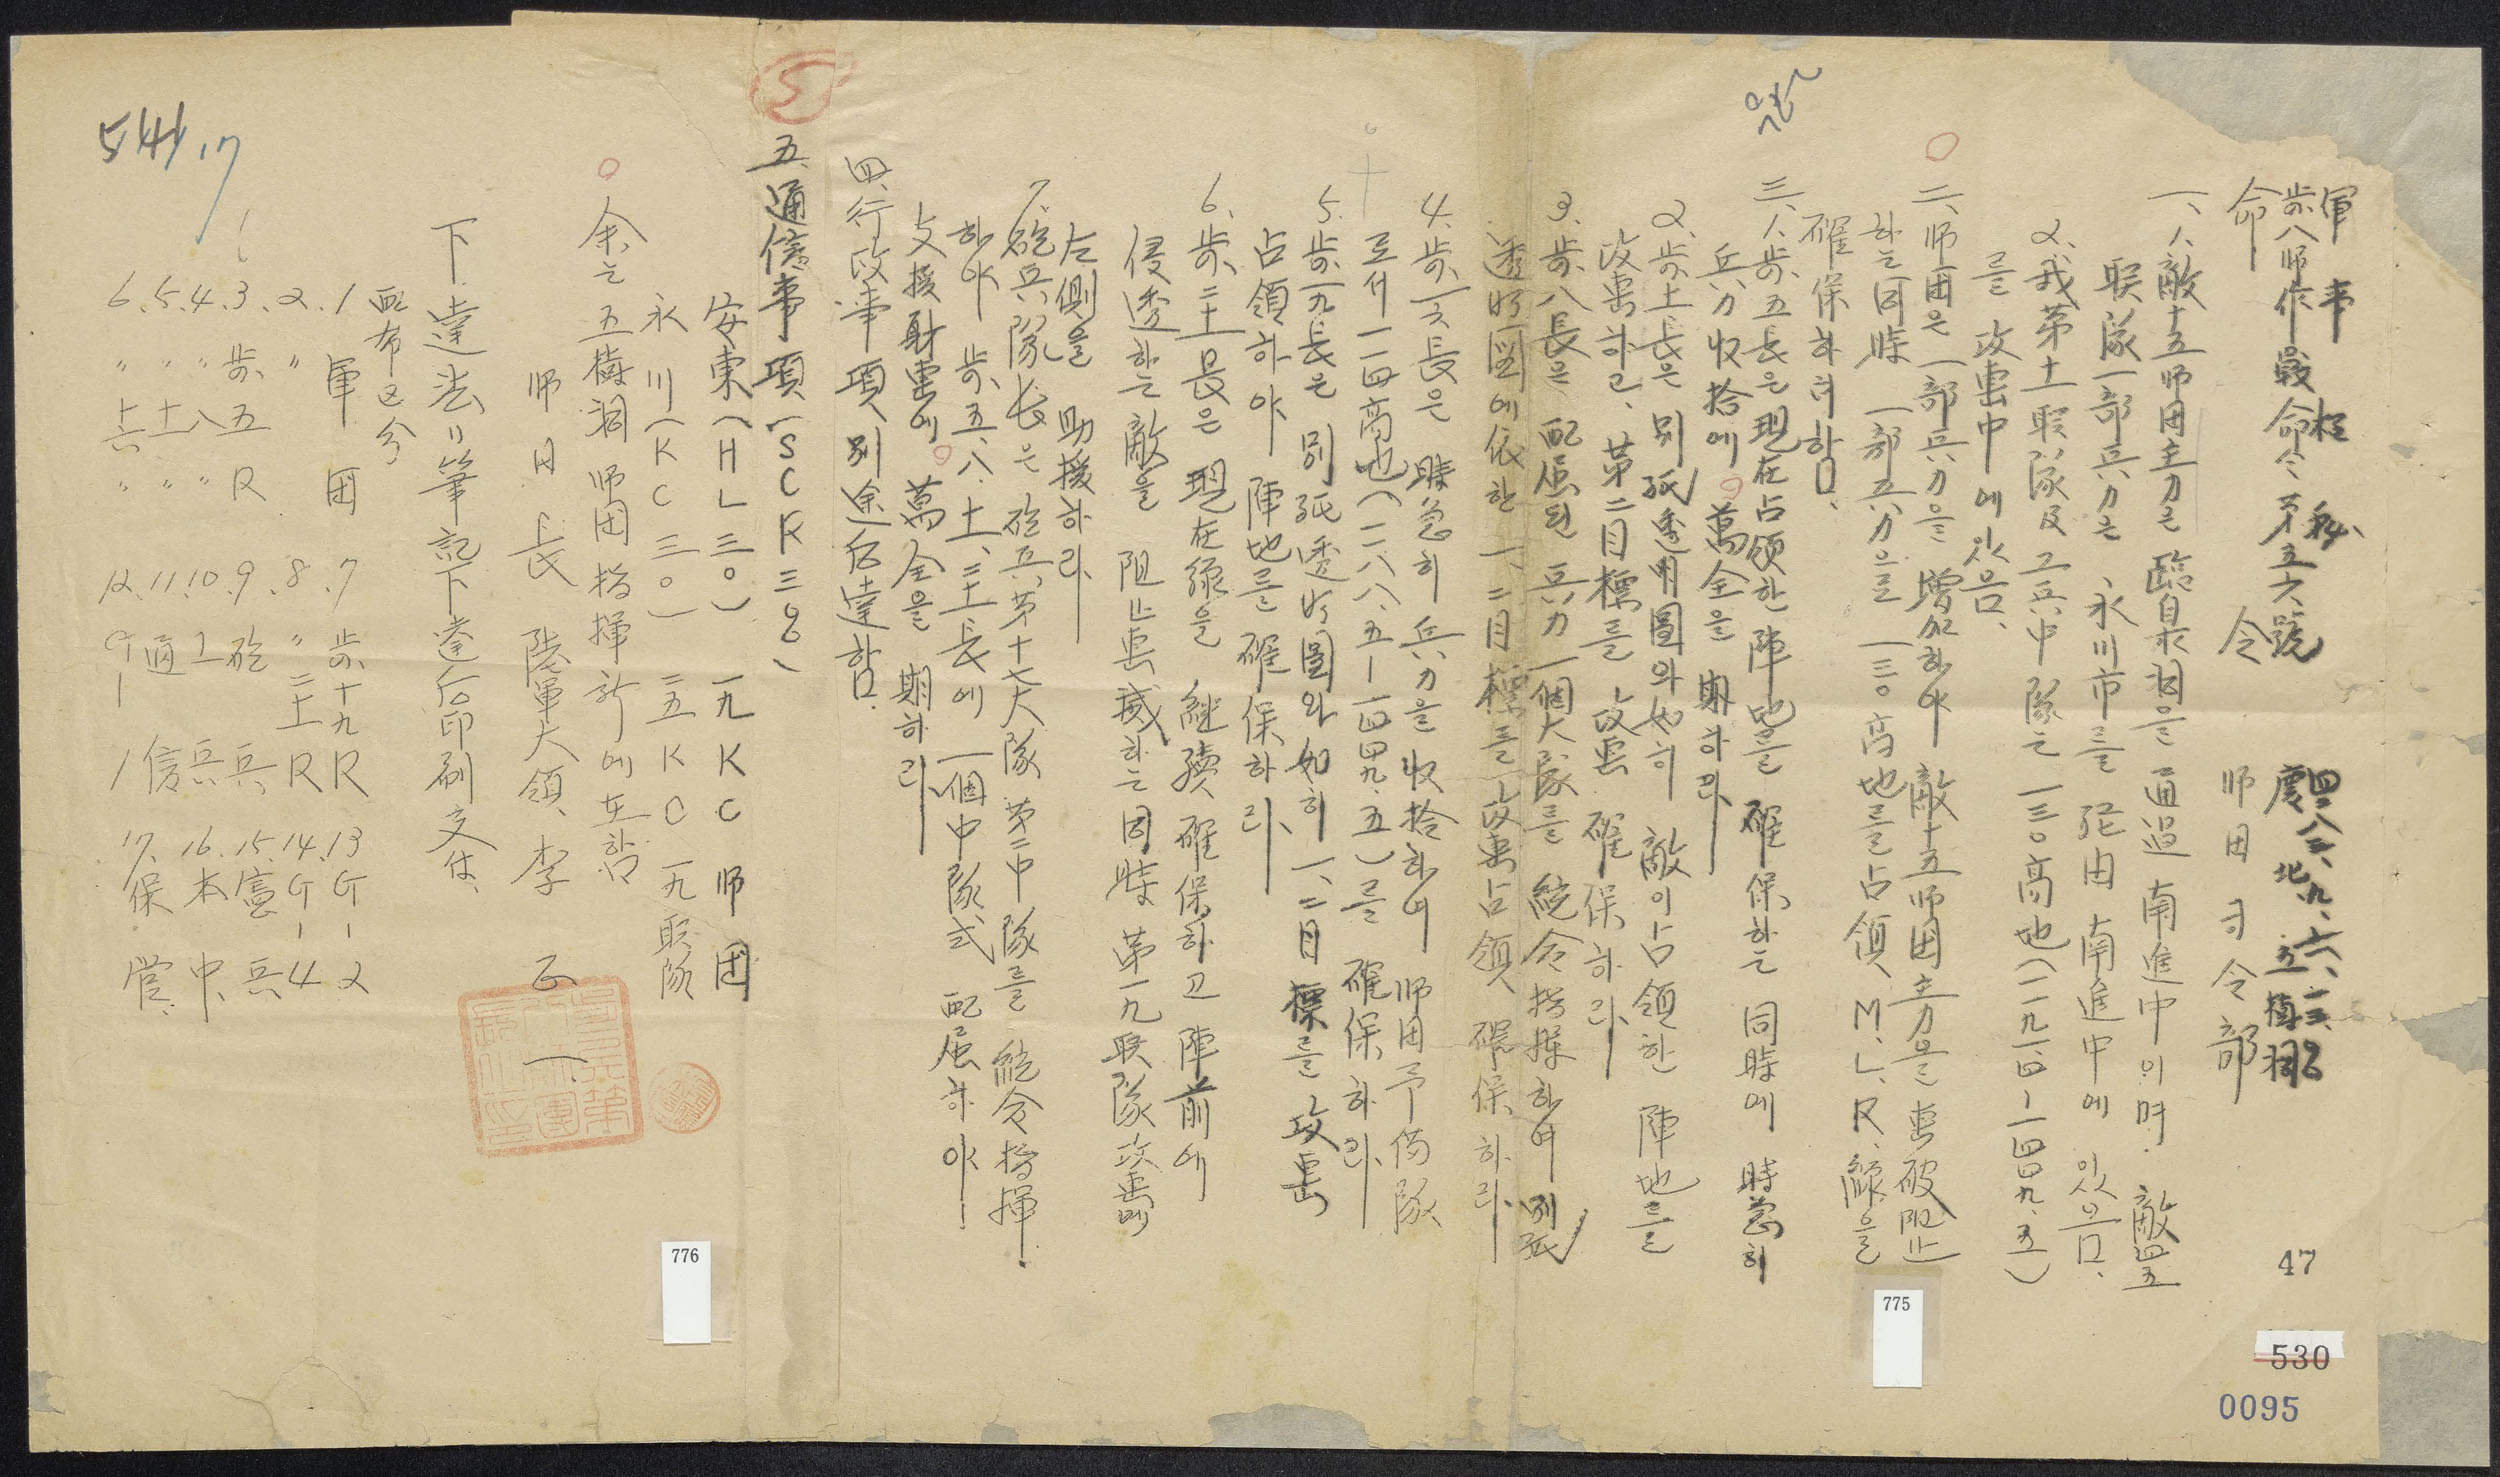 軍事極秘
步八師作戰命令 第五六號
四二八三、九、六、
慶北 立植洞
命 令 師団司令部
一、1. 敵十五師団主力은 臨泉洞을 通過 南進中이며 敵四五
联隊 一部兵力은 永川市를 経由 南進中에 있음.
2. 我第十一联隊及工兵中隊는 一三〇高地(一一九一.四-一四四九.五)
를 攻击中에 있음.
二、師団은 一部兵力을 增加하야 敵十五師団主力을 击破阻止
하는 同時 一部兵力으로 一三〇高地를 占領 M.L.R.線을
確保하려함.
三、1. 步五長은 現在占領한 陣地를 確保하는 同時에 時急히
兵力收拾에 萬全을 期하라
2. 步十一長은 別紙透明圖와如히 敵이占領한 陣地를
攻击하고、第二目標를 攻击 確保하라
3. 步八長은 配属된 兵力 一個大隊를 統合指揮하여 別紙
透明図에依한 一、二目標를 攻击占領 確保하라
4. 步一六長은 時急히 兵力을收拾하여 師団予備隊
로서 一一四高地(一一八八.五-一四四九.五)를 確保하라
5. 步一九長은 別紙透明圖와如히 一、二目標를 攻击
占領하야 陣地를 確保하라
6. 步二十一長은 現在線을 継續 確保하고 陣前에
侵透하는敵을 阻止击滅하는同時 第一九联隊攻击時
左側을 助援하라
7. 砲兵隊長은 砲兵第十七大隊 第二中隊를 統合指揮
하야 步五、八、十一、二十一長에 一個中隊式 配属하야
支援射击에 萬全을 期하라
四、行政事項 別途后達함.
五、通信事項(SCR三〇〇)
安東(HL三〇) 一九KC 師団
永川(KC三〇) 二五KC 一九联隊
余는 立植洞 師団指揮所에在함
師団長 陸軍大領 李 正 一
下達法 筆記下達后印刷交付.
配布区分
1 軍団 7. 步十九R 13 G-2
2. 〃 8. 〃二十一R 14. G-4
3. 步五R 9. 砲兵 15. 憲兵
4. 〃八〃 10. 工兵 16. 本中
5. 〃十一〃 11. 通信 17. 保管.
6. 〃十六〃 12. G-1
5
47
530
0095
775
776